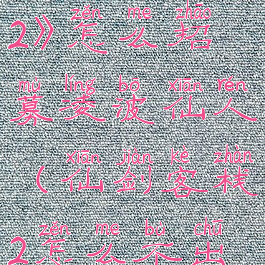 zěn me zhāo
2》怎么招
mù líng bō xiān rén
募凌波仙人
xiān jiàn kè zhàn
(仙剑客栈
zěn me bù chū
2怎么不出